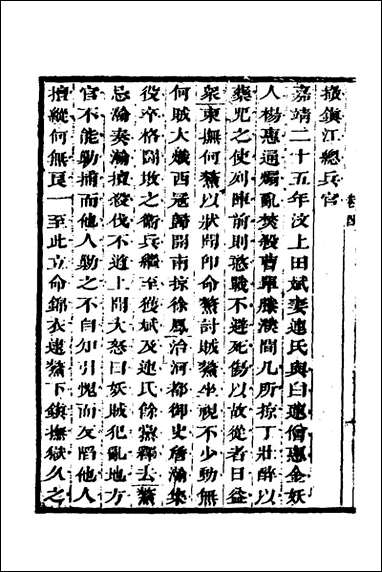 撤鎮江總兵官
嘉靖二十五年汶上田斌妻連氏與白蓮僧惠金妖
人楊惠通煽亂焚殺曹單滕漢間凡所掠丁壯醉以
藥咒之使列陣前則憨戰不避死傷以故從者日益
衆東撫何鰲以狀聞即命鰲討賊鰲坐視不少動無
何賊大熾西寇歸開南掠徐鳳治河都御史詹瀚集
役卒格鬪故之衛兵繼至獲斌及連氏餘黨釋去鰲
忌瀚奏瀚擅役伐不道上聞大怒曰妖賊犯亂地方
官不能勦捕而他人勦之不自知引愧而反陷他人
擅縱何無良一至此立命錦衣逮鰲下鎮撫獄久之